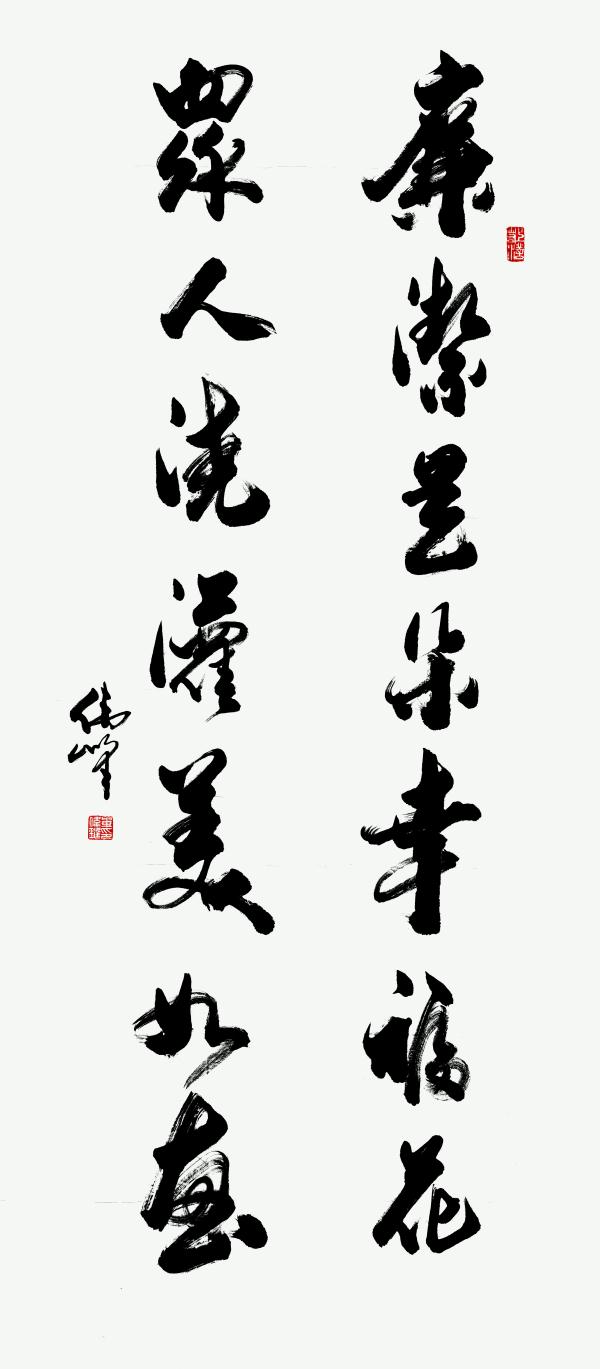 廉潔是朵幸福花
眾人澆灌美如畫
偉峰